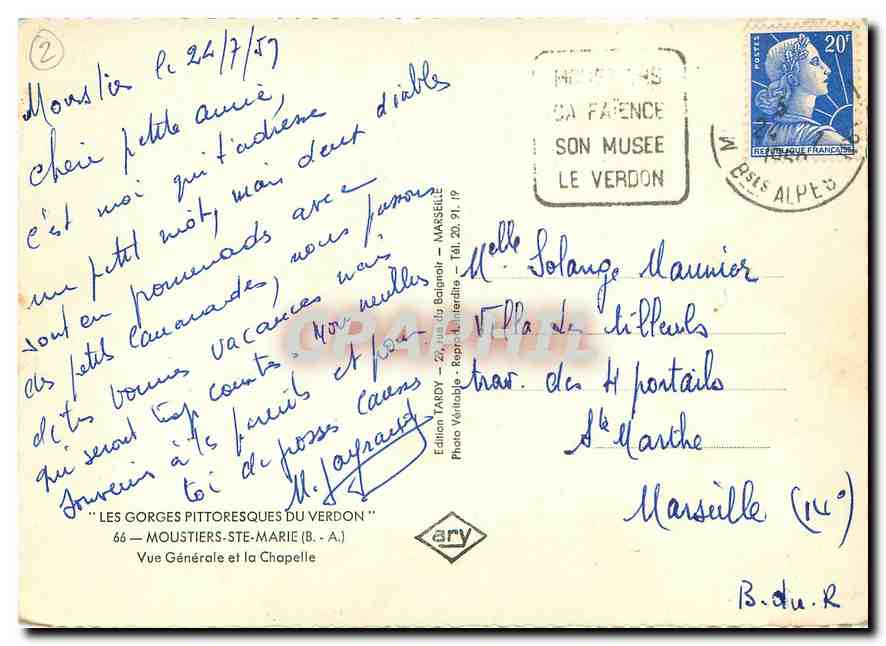 2
Moustiers le 24/7/59
Chère petite amie,
c'est moi qui t'adresse
un petit mot, mais deux diables
sont en promenade avec
des petits camarades, nous passons
de très bonnes vacances mais
qui seront trop courtes. Mon meilleur
souvenir à tes parents et pour
toi de grosses caresses
M.
"LES GORGES PITTORESQUES DU VERDON"
66 — MOUSTIERS-STE-MARIE (B.-A.)
Vue Générale et la Chapelle
Edition TARDY — 29, rue du Baignoir — MARSEILLE
Photo Véritable - Reprod. Interdite - Tél. 20.91.19
ary
CARPHIL
SA FAÏENCE
SON MUSEE
LE VERDON
POSTES
20F
REPUBLIQUE FRANÇAISE
Bses ALPES
Melle Solange Maunier
Villa les tilleuls
trav. des 4 portails
Ste Marthe
Marseille (14°)
B.du.R